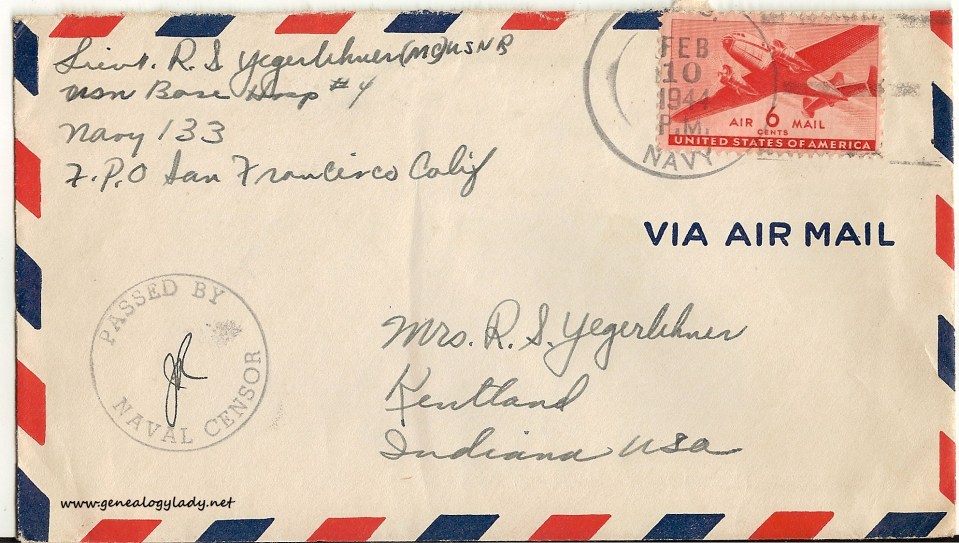 Lieut. R. S. Yegerlehner (MC) USNR
USN Base Hosp #4
Navy 133
F.P.O San Francisco Calif
FEB
10
1944
P.M.
NAVY
AIR 6 MAIL
CENTS
UNITED STATES OF AMERICA
VIA AIR MAIL
PASSED BY
NAVAL CENSOR
Mrs. R. S. Yegerlehner
Kentland
Indiana USA
www.genealogylady.net